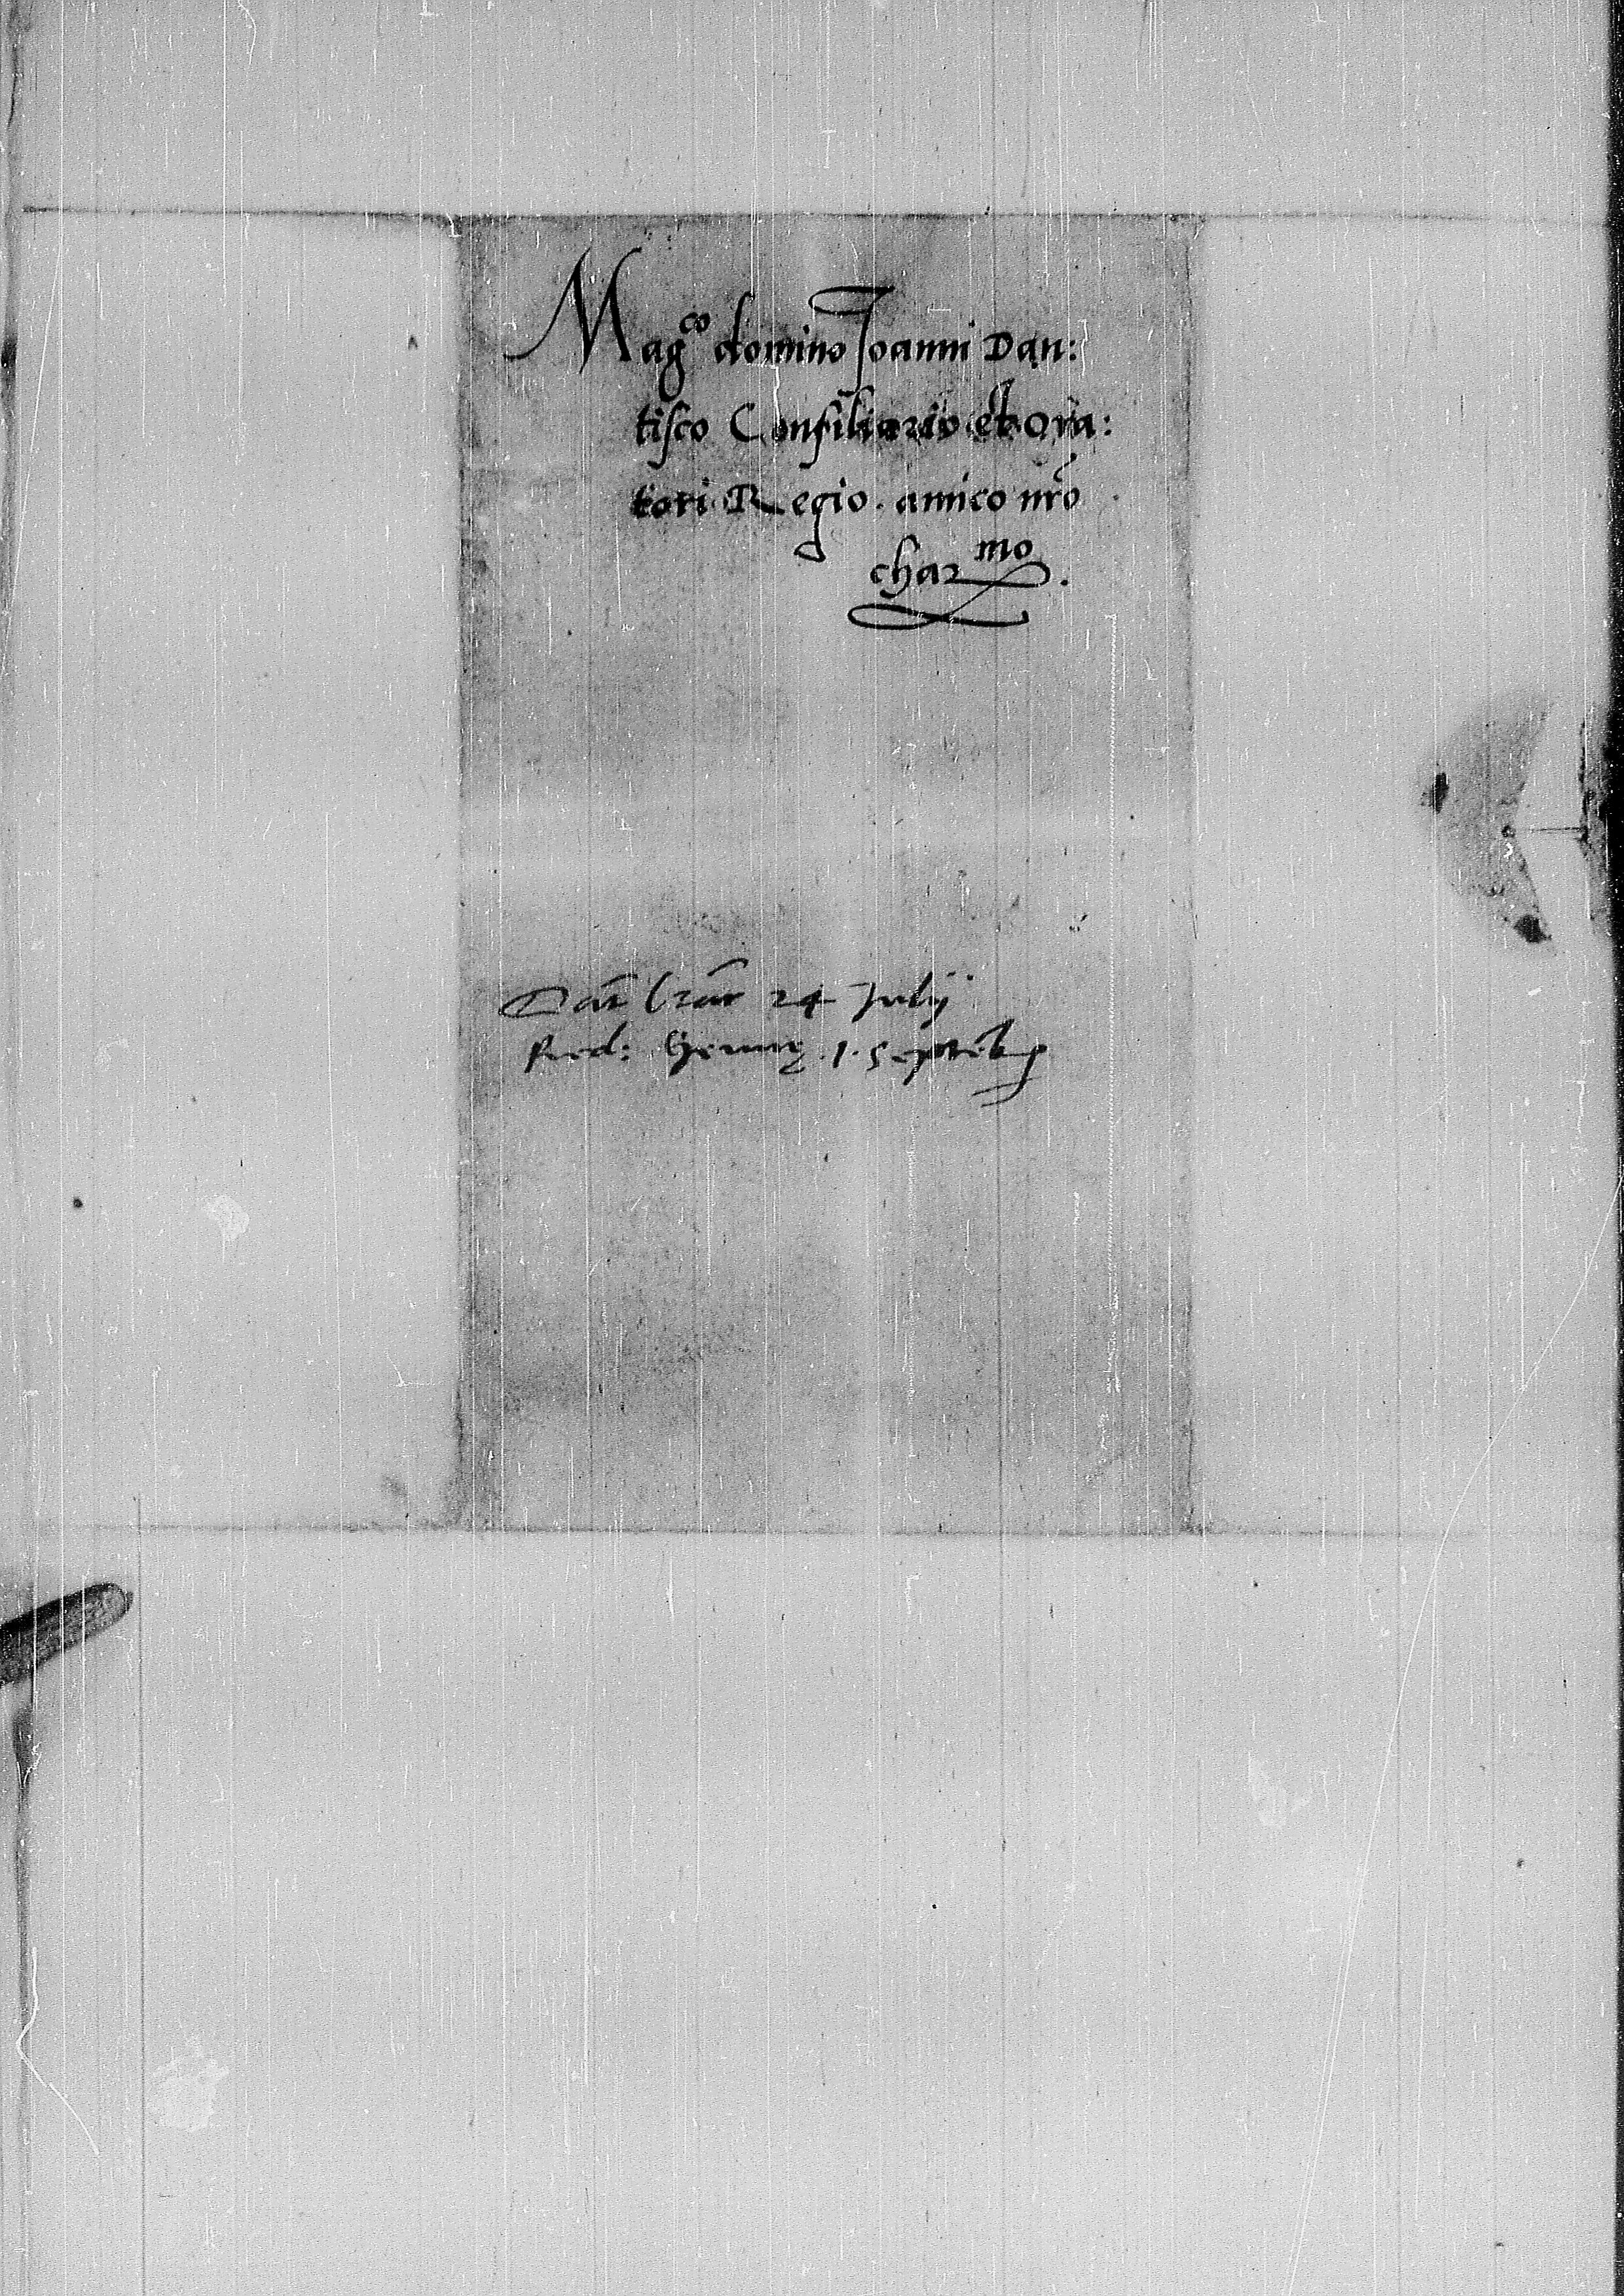 Mag^co domino Joanni Dan:
tisco Consiliario et Ora:
tori Regio. amico nrõ
char^mo.
Dat Crac 24 Julij
Red: Genuę .1. Septẽb